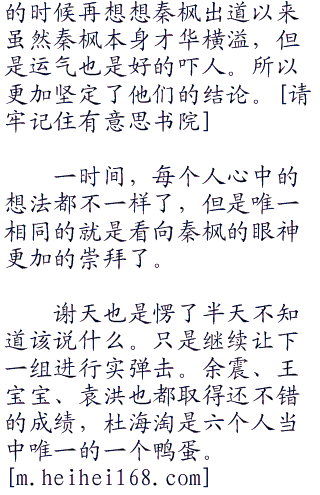 的时候再想想秦枫出道以来
虽然秦枫本身才华横溢，但
是运气也是好的吓人。所以
更加坚定了他们的结论。[请
牢记住有意思书院]
一时间，每个人心中的
想法都不一样了，但是唯一
相同的就是看向秦枫的眼神
更加的崇拜了。
谢天也是愣了半天不知
道该说什么。只是继续让下
一组进行实弹击。余震、王
宝宝、袁洪也都取得还不错
的成绩，杜海淘是六个人当
中唯一的一个鸭蛋。
[m.heihei168.com]